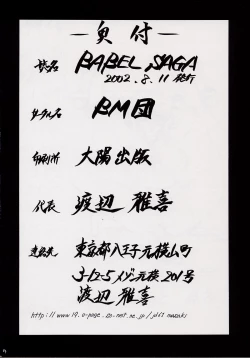 —奥付—
誌名 BABEL SAGA
2002.8.11 発行
サークル名 BM団
印刷所 大陽出版
代表 渡辺 雅喜
連絡先 東京都八王子元横山町
3-12-5 イゾン元横 201号
渡辺 雅喜